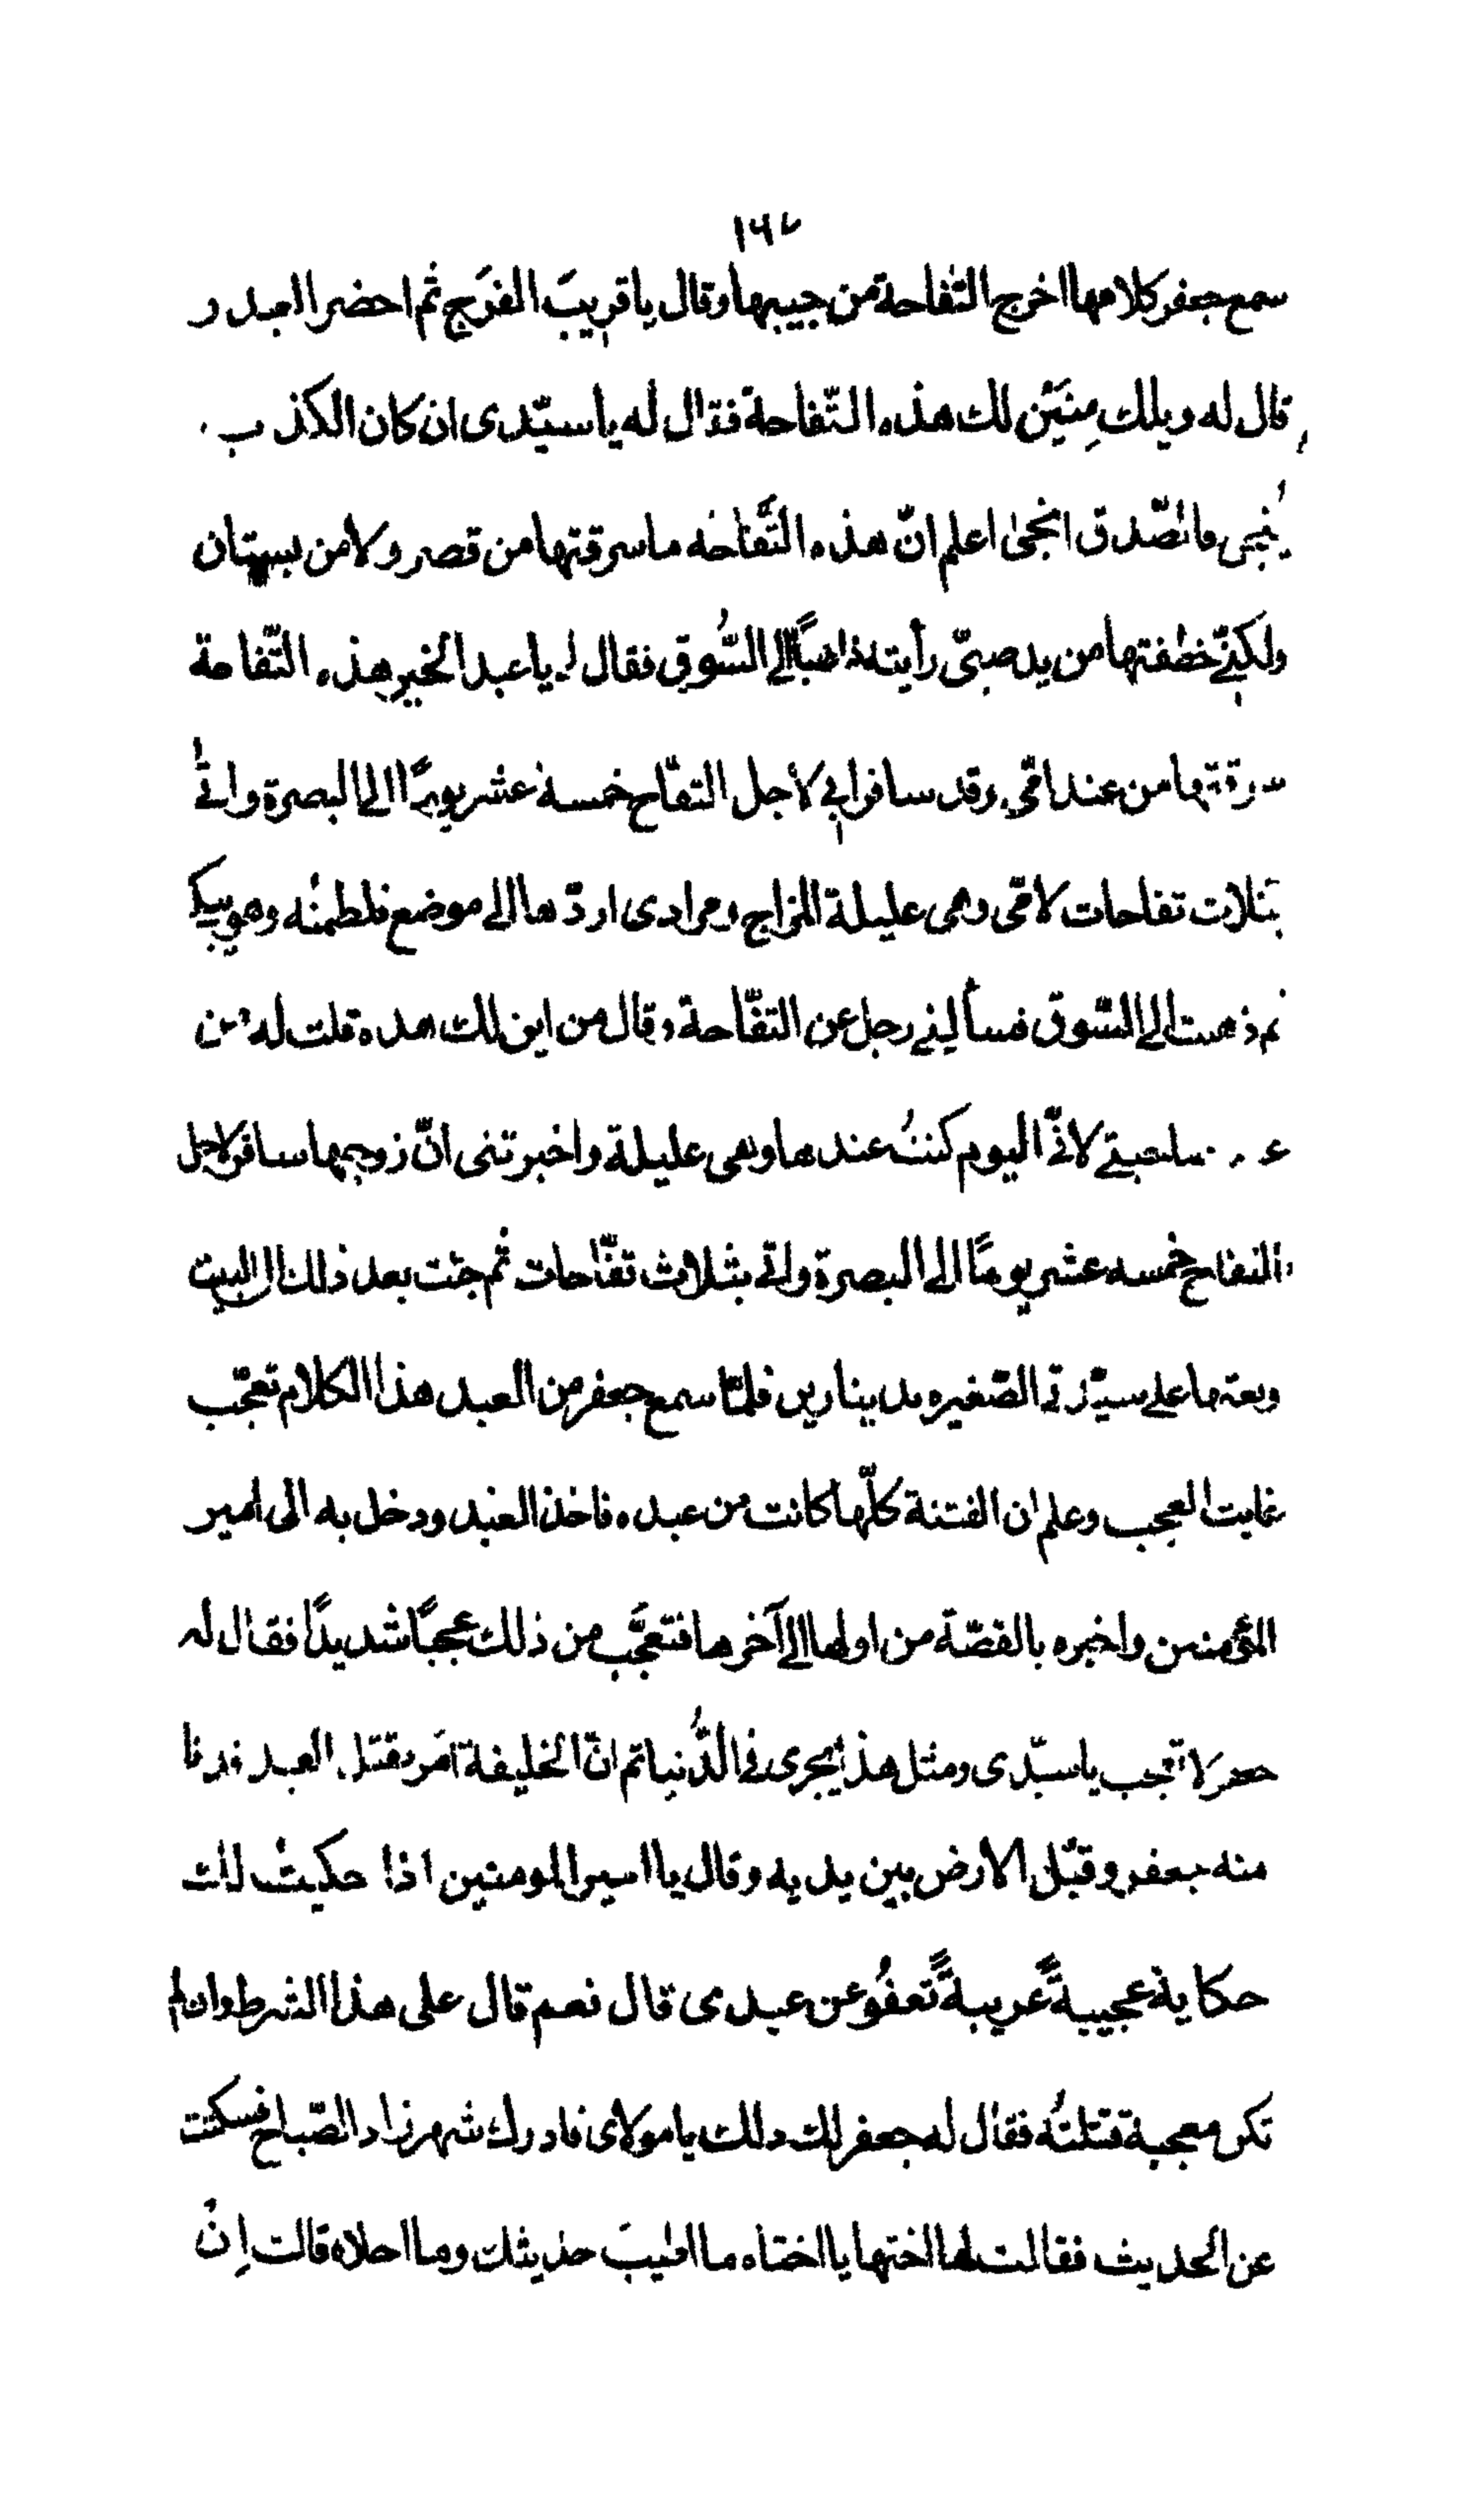 ١٦٧
سمع جعفر كلامها اخرج التفّاحة من جيبها وقال يا قريبَ الفَرَج ثم احضر العبد و
قال له ويلك مِنَيْن لك هذه التّفاحة فقال له يا سيّدى ان كان الكذب
يُنجى فالصّدق انجى اعلم انّ هذه التّفّاحه ما سرقتها من قصر ولا من بستان
ولكنّي خطفتها من يد صبىّ رأيته ذاهباً الى السُّوق فقال لى يا عبد الخير هذه التّفّاحة
سرقتها من عند امّى وقد سافر ابي لأجل التفّاح خمسة عشر يومًا الى البصرة واتى
بثلاث تفاحات لامّى وهى عليلة المزاج ومرادى اردّها الى موضع فلطمته وهو يبكى
ثم ذهبت الى السّوق فسألني رجل عن التفّاحة وقال من اين لك هذه قلت له من
عند صاحبتي لانّى اليوم كنتُ عندها وهى عليلة واخبرتنى انّ زوجها سافر لاجل
التفاح خمسه عشر يومًا الى البصرة واتى بثلاث تفّاحات ثم جئت بعد ذلك الى البيت
وبعتها على سيّدتى الصّغيره بدينارين فلمّا سمع جعفر من العبد هذا الكلام تعجّب
غايت العجب وعلم ان الفتنة كلّها كانت من عبده فاخذ العبد ودخل به الى امير
المؤمنين واخبره بالقصّة من اولها الى آخرها فتعجَّب من ذلك عجبًا شديدًا فقال له
جعفر لا تعجب يا سيّدى ومثل هذا يجرى فى الدُّنيا ثم انّ الخليفة امَر بقتل العبد فدنا
منه جعفر وقبّل الارض بين يديه وقال يا امير المومنين اذا حكيتُ لك
حكاية عجيبةً غريبةً تعفُو عن عبدى قال نعم قال على هذا الشرط وان لم
تكن معجبة قتلتُه فقال له جعفر لك ذلك يا مولاى فادرك شهرزاد الصّباح فسكتت
عن الحديث فقالت لها اختها يا اختاه ما اطيبَ حديثك وما احلاه قالت اِنْ